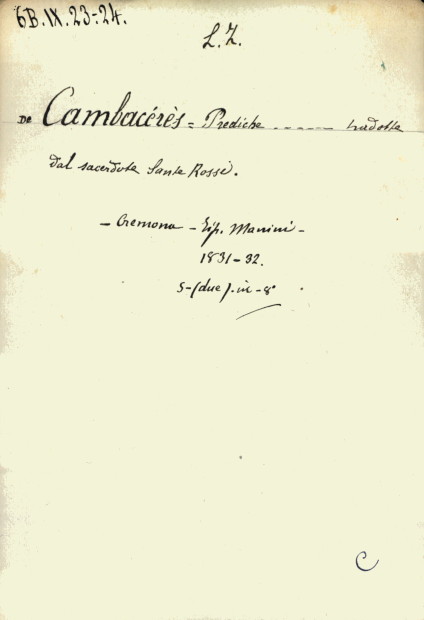 6B.IX.23-24.
L.Z.
De Cambacérès = Prediche ------ tradotte
dal sacerdote Sante Rossi.
- Cremona - Tip. Manini -
1831-32.
5-(due).in-8°
C